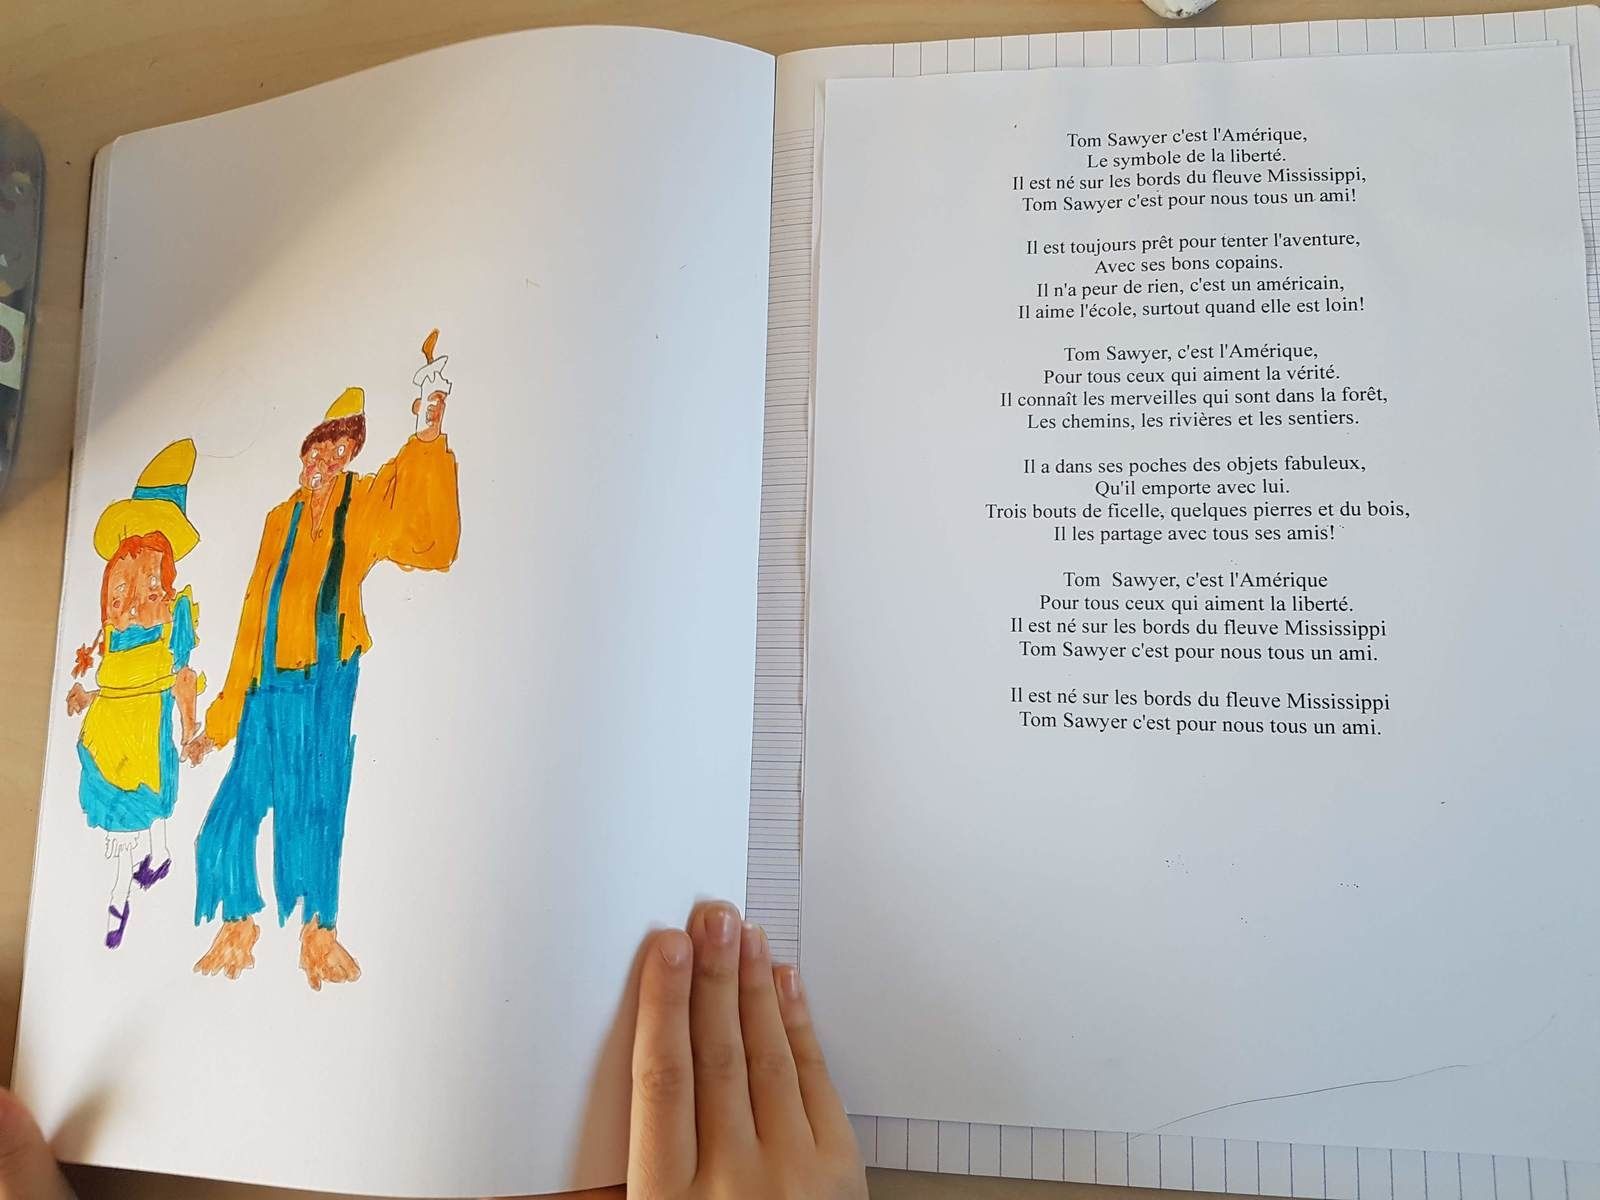 Tom Sawyer c'est l'Amérique,
Le symbole de la liberté.
Il est né sur les bords du fleuve Mississippi,
Tom Sawyer c'est pour nous tous un ami!
Il est toujours prêt pour tenter l'aventure,
Avec ses bons copains.
Il n'a peur de rien, c'est un américain,
Il aime l'école, surtout quand elle est loin!
Tom Sawyer, c'est l'Amérique,
Pour tous ceux qui aiment la vérité.
Il connaît les merveilles qui sont dans la forêt,
Les chemins, les rivières et les sentiers.
Il a dans ses poches des objets fabuleux,
Qu'il emporte avec lui.
Trois bouts de ficelle, quelques pierres et du bois,
Il les partage avec tous ses amis!
Tom  Sawyer, c'est l'Amérique
Pour tous ceux qui aiment la liberté.
Il est né sur les bords du fleuve Mississippi
Tom Sawyer c'est pour nous tous un ami.
Il est né sur les bords du fleuve Mississippi
Tom Sawyer c'est pour nous tous un ami.